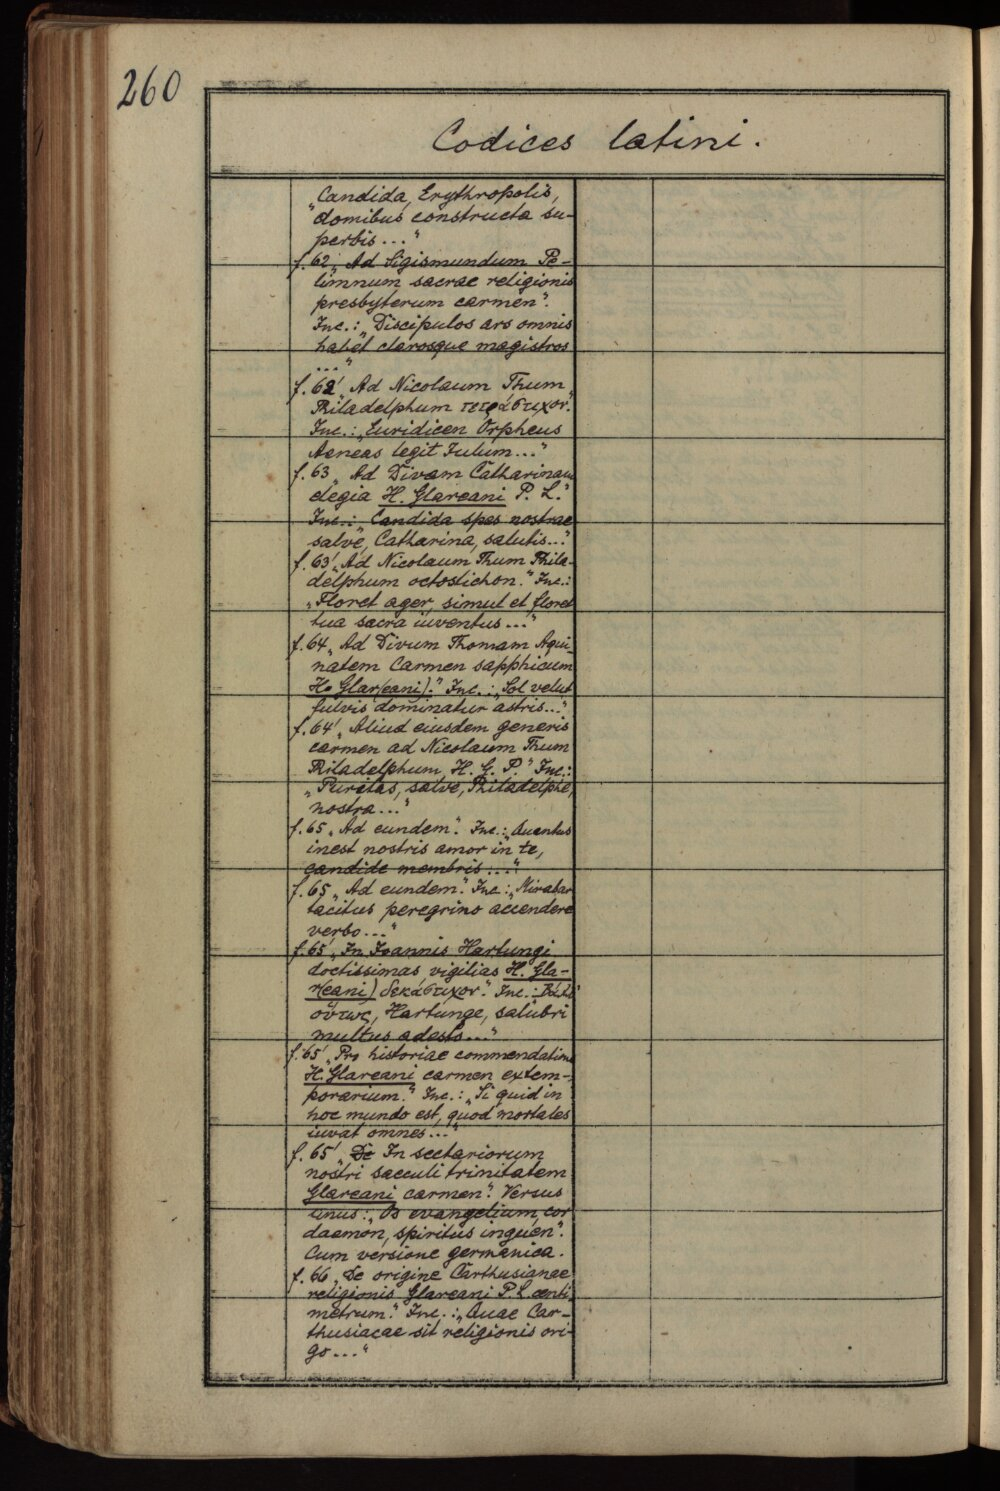 260
Codices latini.
„Candida, Erythropolis,
domibus constructa su-
perbis ..."
f. 62 „Ad Sigismundum Pe-
limnum sacrae religionis
presbyterum carmen".
Inc.: „Discipulos ars omnis
habet clarosque magistros
..."
f. 62' „Ad Nicolaum Thum
Philadelphum τετράστιχον".
Inc.: „Euridicen Orpheus
Aeneas legit Iulum..."
f. 63 „Ad Divam Catharinam
elegia H. Glareani P. L."
Inc.: „Candida spes nostrae
salve, Catharina, salutis..."
f. 63' „Ad Nicolaum Thum Phila-
delphum octostichon." Inc.:
„Floret ager, simul et floret
tua sacra iuventus..."
f. 64 „Ad Divum Thomam Aqui-
natem Carmen sapphicum
H. Glar(eani)." Inc.: „Sol velut
fulvis dominatur astris..."
f. 64' „Aliud eiusdem generis
carmen ad Nicolaum Thum
Philadelphum, H. G. P." Inc.:
„Puritas, salve, Philadelphe,
nostra..."
f. 65 „Ad eundem". Inc.: „Quantus
inest nostris amor in te,
candide membris..."
f. 65 „Ad eundem". Inc.: „Mirabar
tacitus peregrino accendere
verbo..."
f. 65 „In Ioannis Hartungi
doctissimas vigilias H. Gla-
r(eani) δεκάστιχον". Inc.:
οὕτως, Hartunge, salubri
multus adesto..."
f. 65' „Pro historiae commendatione
H. Glareani carmen extem-
porarium." Inc.: „Si quid in
hoc mundo est, quod mortales
iuvat omnes..."
f. 65' „De In sectariorum
nostri saeculi trinitatem
Glareani carmen". Versus
unus: „Os evangelium, cor
daemon, spiritus inguen".
Cum versione germanica.
f. 66 „De origine Carthusianae
religionis Glareani P. L. centi-
metrum." Inc.: „Quae Car-
thusiacae sit religionis ori-
go..."